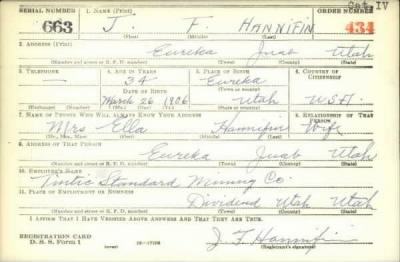 Cat IV
SERIAL NUMBER 1. NAME (Print) ORDER NUMBER
663 J. F. HANNIFIN 434
(First) (Middle) (Last)
2. ADDRESS (Print)
Eureka Juab Utah
(Number and street or R. F. D. number) (Town) (County) (State)
3. TELEPHONE 4. AGE IN YEARS 5. PLACE OF BIRTH 6. COUNTRY OF CITIZENSHIP
— 34 Eureka
DATE OF BIRTH (Town or county)
March 26 1906 Utah U.S.A.
(Exchange) (Number) (Mo.) (Day) (Yr.) (State or country)
7. NAME OF PERSON WHO WILL ALWAYS KNOW YOUR ADDRESS 8. RELATIONSHIP OF THAT PERSON
Mrs Ella Hannifin Wife
(Mr., Mrs., Miss) (First) (Middle) (Last)
9. ADDRESS OF THAT PERSON
Eureka Juab Utah
(Number and street or R. F. D. number) (Town) (County) (State)
10. EMPLOYER'S NAME
Tintic Standard Mining Co.
11. PLACE OF EMPLOYMENT OR BUSINESS
Dividend Utah Utah
(Number and street or R. F. D. number) (Town) (County) (State)
I AFFIRM THAT I HAVE VERIFIED ABOVE ANSWERS AND THAT THEY ARE TRUE.
REGISTRATION CARD
D. S. S. Form 1
(over) 16—17105
J. F. Hannifin
(Registrant's signature)